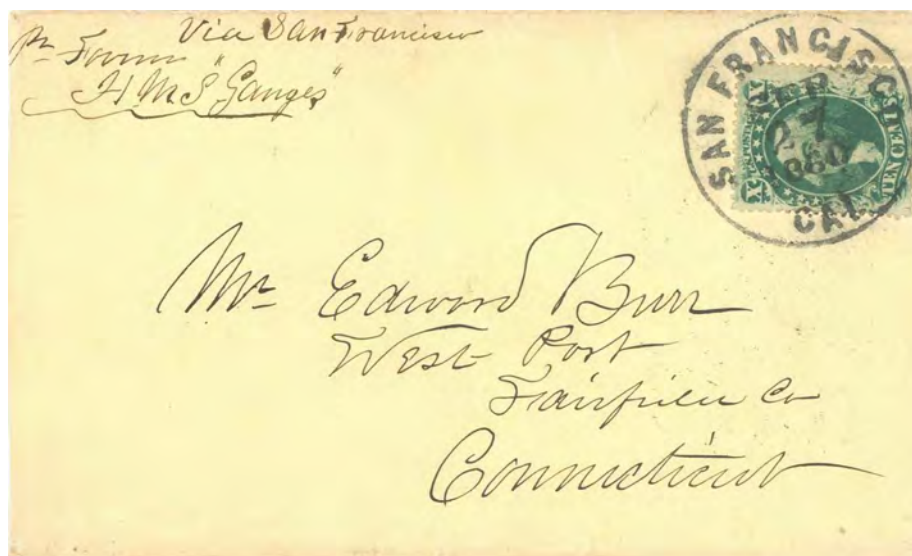 Via San Francisco
Pr Favour
H M S "Ganges"
SAN FRANCISCO
7
1860
CAL
X
TEN CENTS
Mr Edward Burr
West Port
Fairfield Co
Connecticut